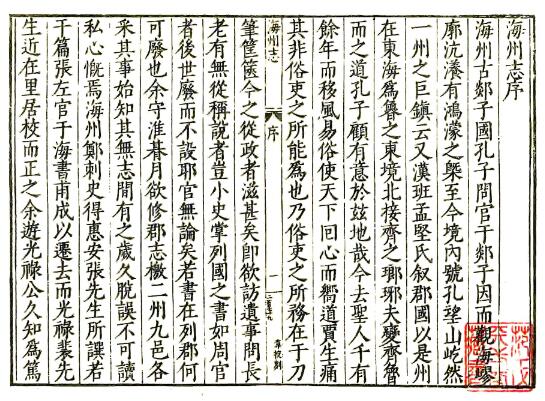 海州志序
海州古郯子國孔子問官于郯子因而觀海嵺
廓沆瀁有鴻濛之槩至今境內號孔望山屹然
一州之巨鎮云又漢班孟堅氏叙郡國以是州
在東海為魯之東境北接齊之瑯琊夫變齊魯
而之道孔子顧有意於玆地哉今去聖人千有
餘年而移風易俗使天下回心而嚮道賈生痛
其非俗吏之所能為也乃俗吏之所務在于刀
海州志 序 一
筆筐篋今之從政者滋甚矣卽欲訪遺事問長
老有無從稱說者豈小史掌列國之書如周官
者後世廢而不設耶官無論矣若書在列郡何
可廢也余守淮朞月欲修郡志檄二州九邑各
采其事始知其無志間有之歲久脫誤不可讀
私心慨焉海州鄭刺史得惠安張先生所譔若
干篇張左官于海書甫成以遷去而光祿裴先
生近在里居校而正之余遊光祿公久知為篤